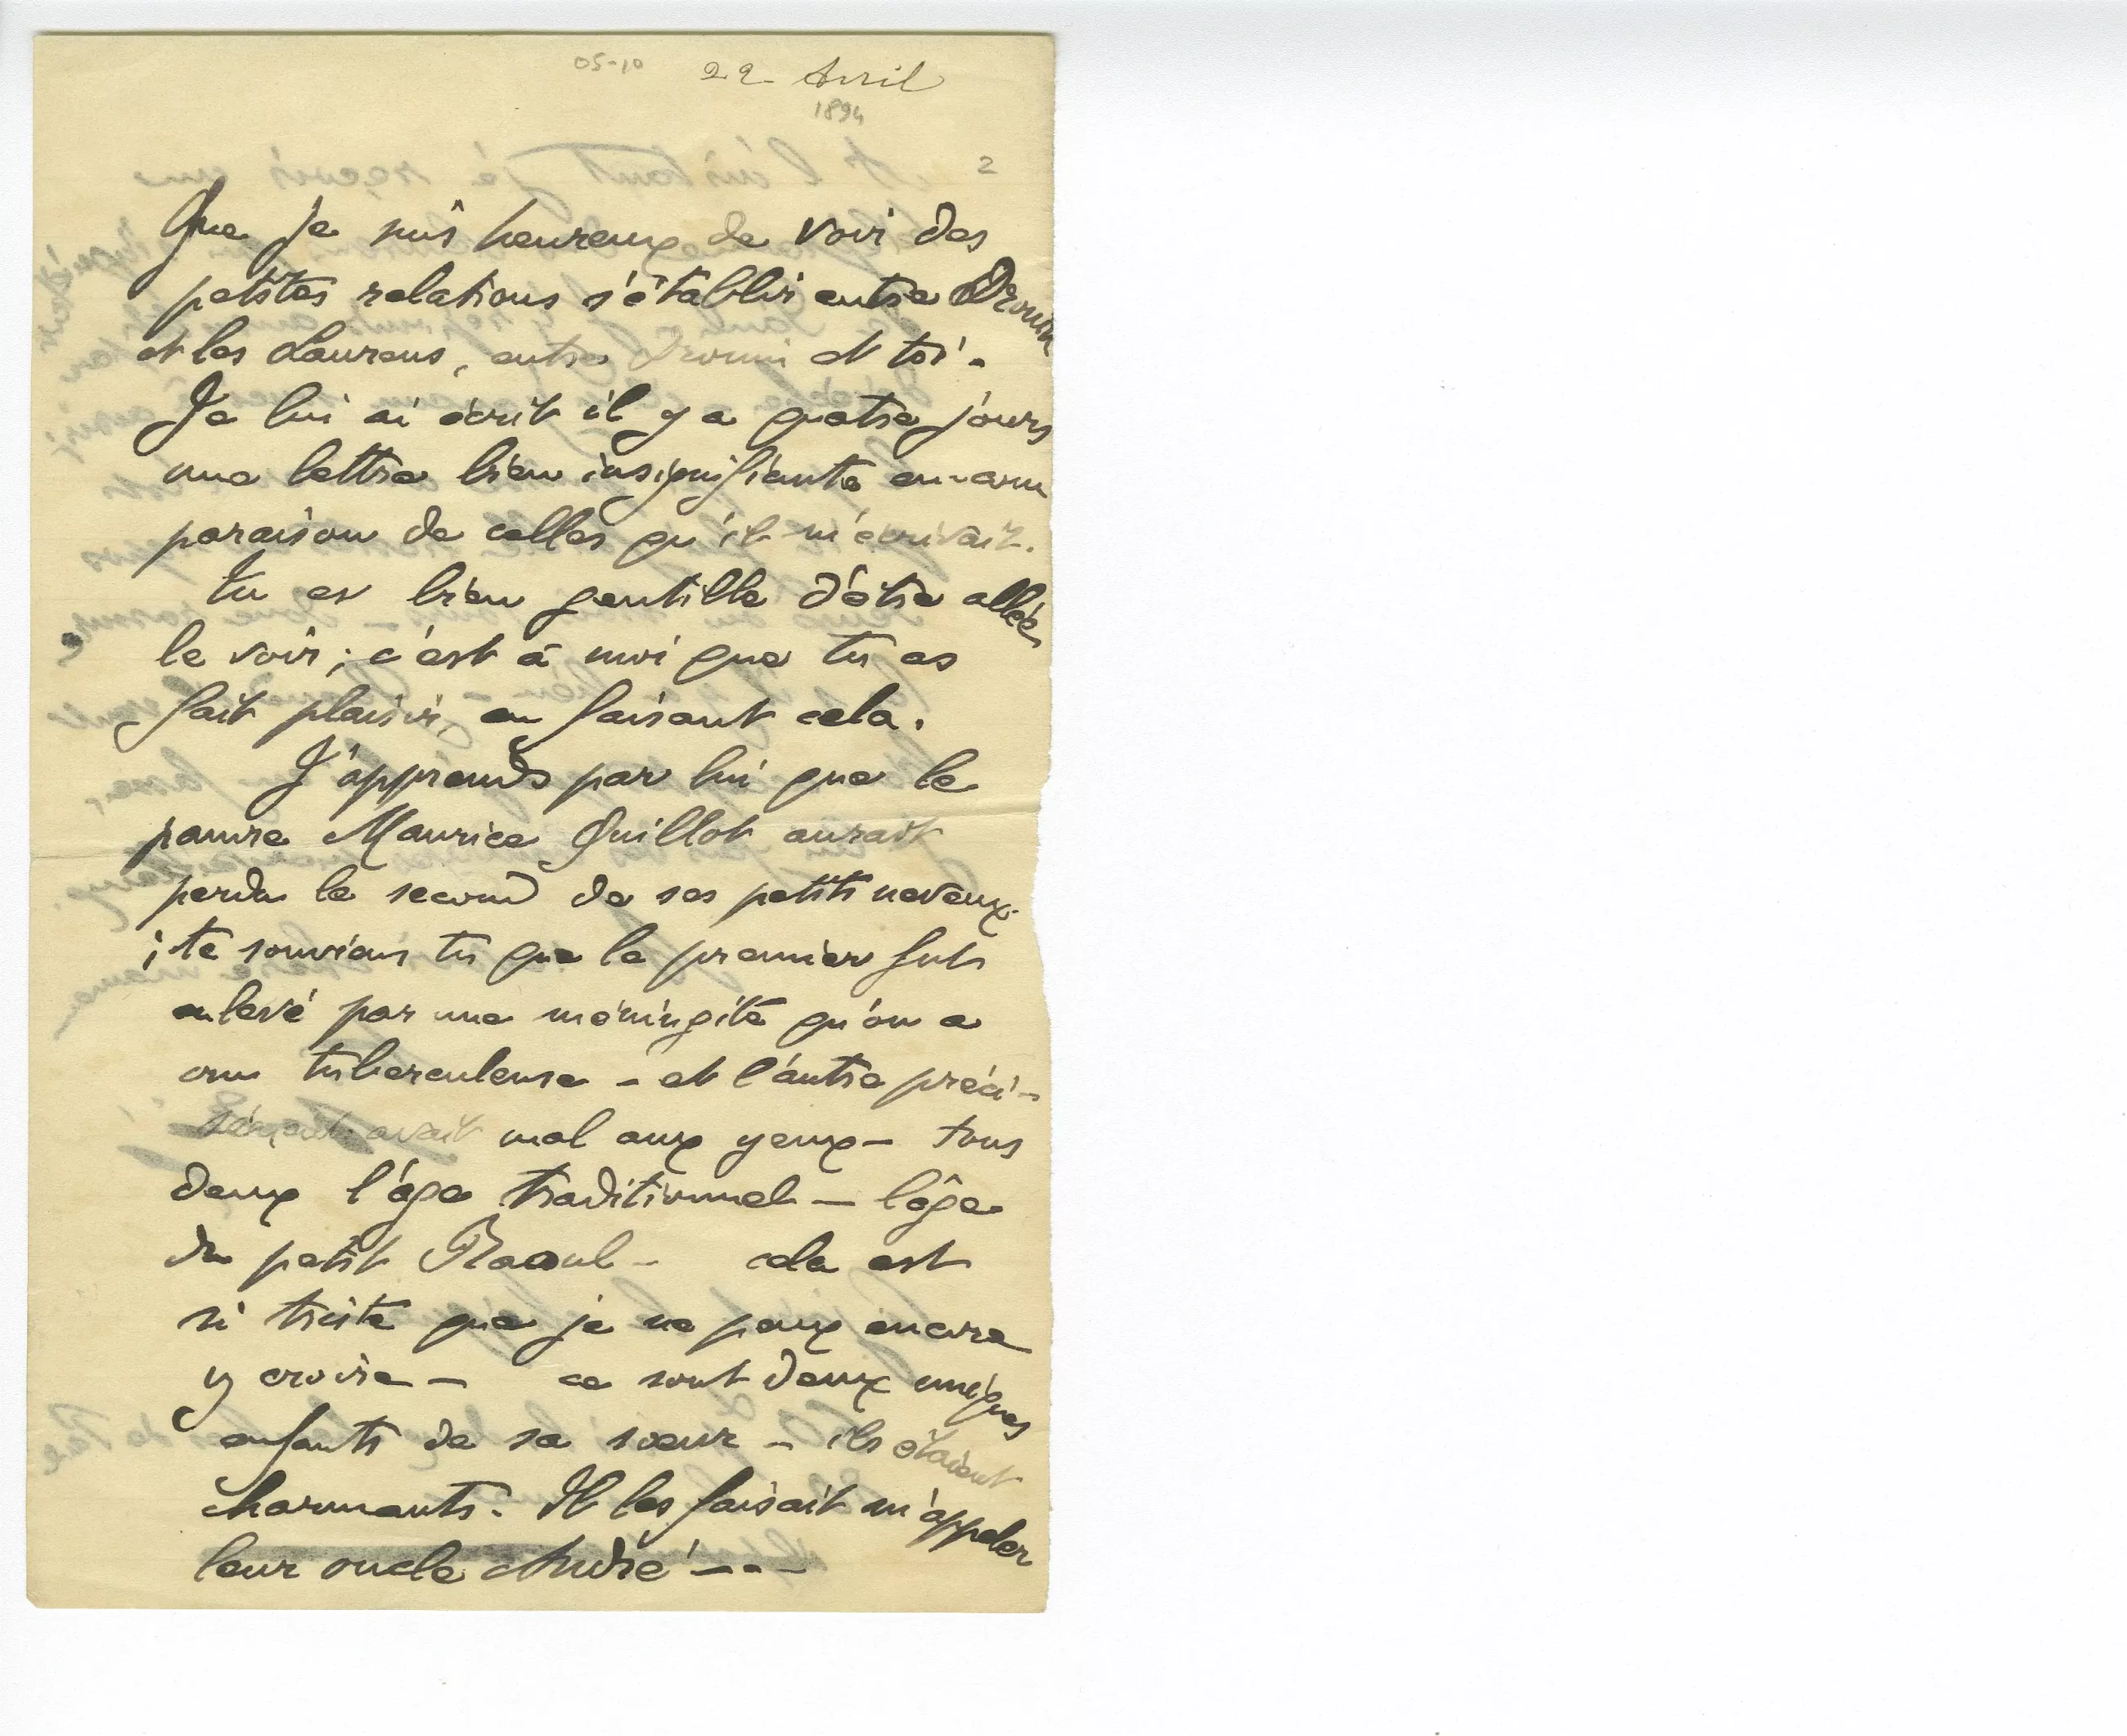 05-10 22 Avril
1894
2
Que je suis heureux de voir des
petites relations s'établir entre Drouin
et les Laurens, entre Drouin et toi -
Je lui ai écrit il y a quatre jours
une lettre bien insignifiante en com
paraison de celles qu'il m'écrivait.
Tu es bien gentille d'être allée
le voir ; c'est à moi que tu as
fait plaisir, en faisant cela.
J'apprends par lui que le
pauvre Maurice Quillot aurait
perdu le second de ses petits neveux
; te souviens tu que le premier fut
enlevé par une méningite qu'on a
cru tuberculeuse - et l'autre préci-
sément avait mal aux yeux - tous
deux l'âge traditionnel - l'âge
du petit Raoul - cela est
si triste que je ne peux encore
y croire - ce sont deux uniques
enfants de sa soeur - ils étaient
charmants. Il les faisait m'appeler
leur oncle André - - -